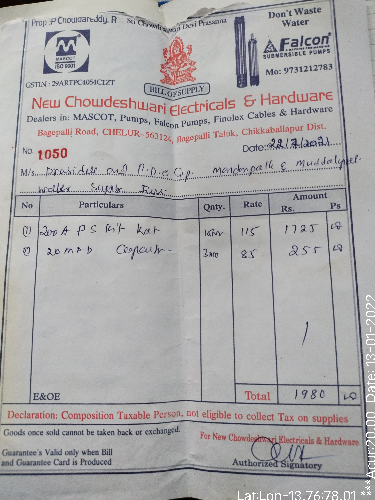 Prop :P Chowdareddy. R
Sri Chowdeshwari Devi Prasanna
Don't Waste
Water
M
MASCOT
ISO 9001
Falcon
SUBMERSIBLE PUMPS
GSTIN : 29ARTPC4054C1ZT
BILL OF SUPPLY
Mo: 9731212783
New Chowdeshwari Electricals & Hardware
Dealers in: MASCOT, Pumps, Falcon Pumps, Finolex Cables & Hardware
Bagepalli Road, CHELUR-563124, Bagepalli Taluk, Chikkaballapur Dist.
No. 1050
Date: 22/7/2021
M/s
No Particulars Qnty. Rate Amount
Rs. Ps
(1) 200A P S Kit Kat 115 1725
20 MFD 3no 85 255
E&OE Total 1980
Declaration: Composition Taxable Person, not eligible to collect Tax on supplies
Goods once sold cannot be taken back or exchanged.
For New Chowdeshwari Electricals & Hardware
Guarantee's Valid only when Bill
and Guarantee Card is Produced
Authorized Signatory
Lat:Lon-13.76:78.01
***Acur:20.00 Date: 13-01-2022